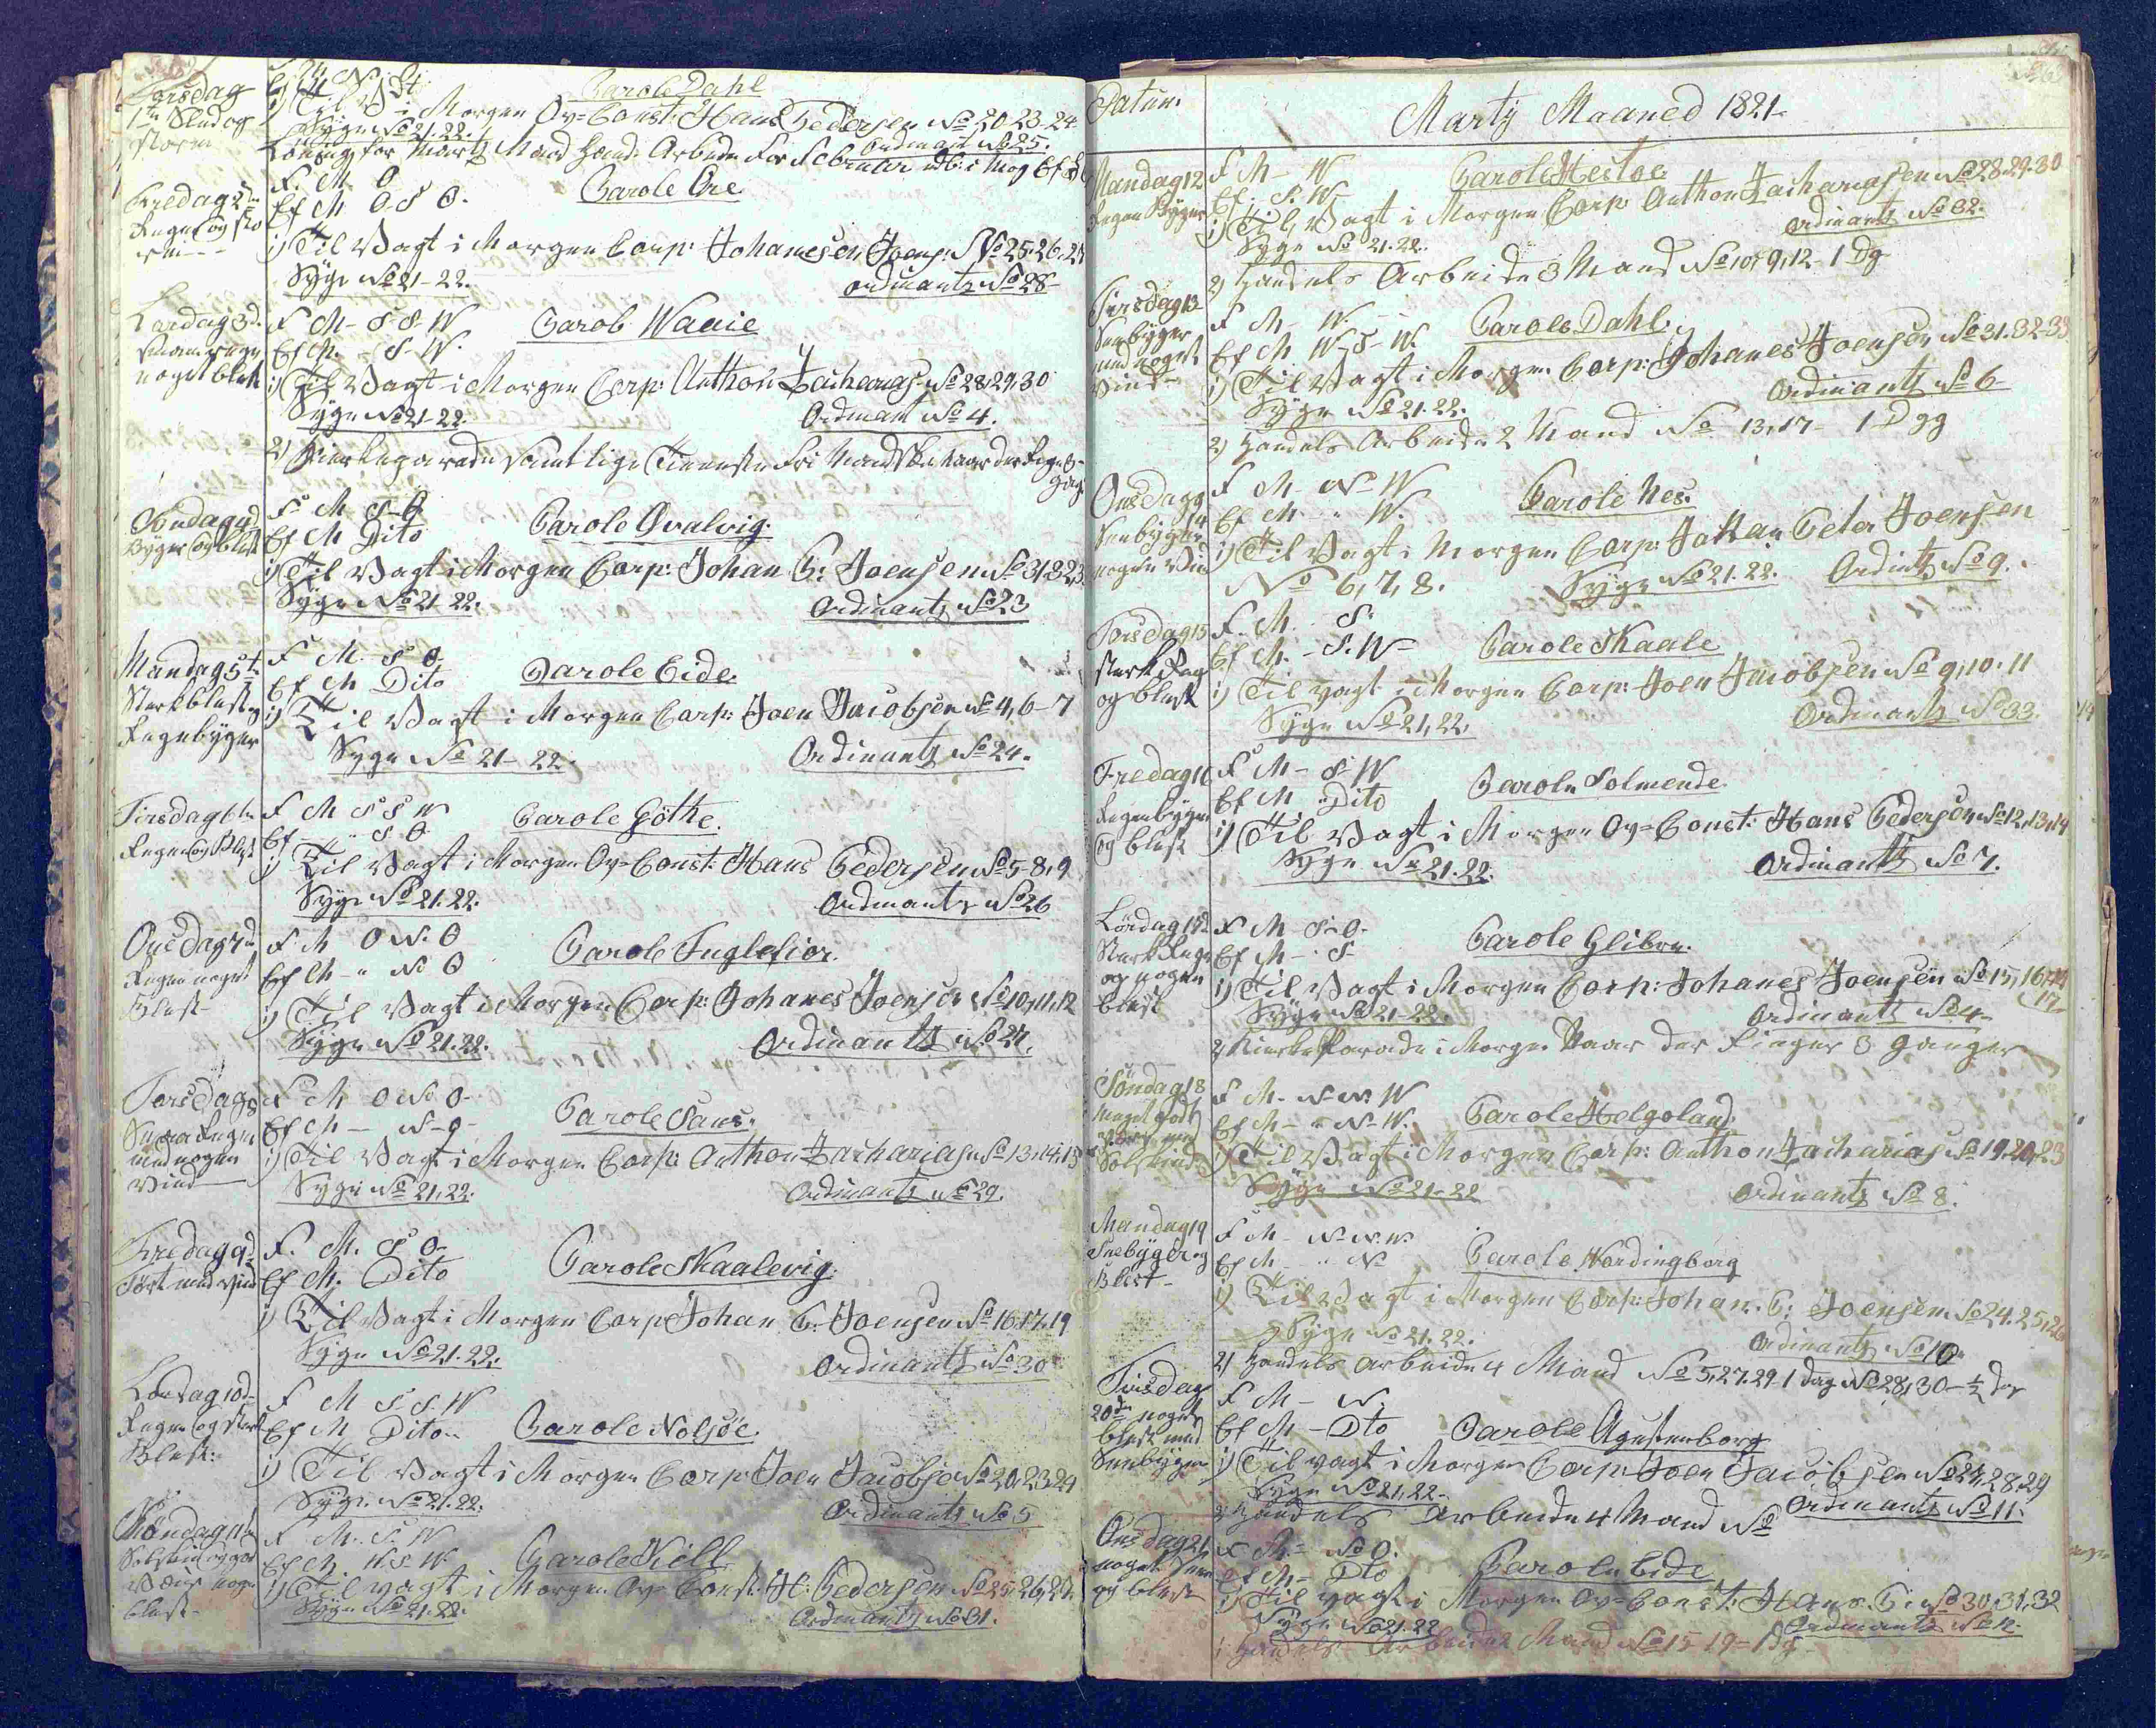 Torsdag
1ste Slud og
storm
Parole Dahl
1) Til Vagt i Morgen Ov=Const: Hans Pedersen No 20-23-24
Syge No 21.22.
Ordinants No 25.
Fredag 2den
Regn og sto
F. M. O
Parole Øre
Ef M O-S O.
1) Til Vagt i Morgen Corp: Johanes Joens: No 25-26-27
Syge No 21-22.
Ordinants No 28-
Lørdag 3d.
noget blæst
F M- S-S-W
Parole Waaie
Ef M. - S-W.
1) Til Vagt i Morgen Corp: Anthon Zacharias- No 28,29,30
Syge No 21-22.
Ordinant No 4.
2) Kierkeparade samtlige Tieneste Fri Mandskab naar der Ringes 3-
gag
Søndag 4d
Byger og blæst
F M S-O
Parole Qvalvig.
Ef M Dito
1) Til Vagt i Morgen Corp: Johan P: Joensen No 31,32,3
Syge No 21-22.
Ordinants No 23
Mandag 5t
Sterk blæst og
Regnbyger
F M. S O-
Parole Eide.
Ef M Dito
1) Til Vagt i Morgen Corp: Joen Jacobsen No 4,6-7
Syge No 21-22.
Ordinants No 24.
Tirsdag 6te
Regn og Blæst
F M S S W
Parole Göthe.
Ef - " S O
1) Til Vagt i Morgen Ov=Const: Hans Pedersen No 5-8,9
Syge No 21.22.
Ordinants No 26
Onsdag 7d
Regn noget
Blæst-
F. M O N. O
Parole Fuglefior.
Ef M - " N O
1) Til Vagt i Morgen Corp: Johanes Joensen No 10,11,12
Syge No 21.22.
Ordinants No 27.
Torsdag 8
Smaa Regn
med nogen
Vind
F M O N O-
Parole Sans.
Ef M - N-O-
1) Til Vagt i Morgen Corp: Anthon Zacharias No 13,14.15
Syge No 21,22.
Ordinants No 29.
Fredag 9d
Tört med vind
F. M. S O-
Parole Skaalevig.
Ef M. Dito
1) Til Vagt i Morgen Corp Johan P: Joensen No 16.17.19
Syge No 21.22.
Ordinants No 30
Lørdag 10d-
Regn og sterk
Blæst.
F M S S-W
Ef M Dito..
Parole Nolsöe.
1) Til Vagt i Morgen Corp: Joen Jacobse No 20,23.24
Syge No 21.22.
Ordinants No 5
Søndag 11
Solskin og god
blæst-
F M. S. W
Ef M. W S W.
Parole Kill
1) Til Vagt i Morgen Ov Const: H: Pedersen No 25,26,27,
Syge No 21.22.
Ordinants No 31.
Datum.
Marty Maaned 1821.
Mandag 12
Regn Byger
F M - W
Parole Hestoe
Ef - S. W-
1) Til Vagt i Morgen Corp: Anthon Zachariasen No 28.29.30
Syge No 21.22.
Ordinants No 32.
2) Handels Arbeide 3 Mand No 10,9,12- 1 Dg
Tirsdag 13
Snebyger
med noget
Vind-
F M W - -
Parole Dahl.
Ef M W-S-W.
1) Til Vagt i Morgen Corp: Johanes Joensen No 31.32-33
Syge No 21.22.
Ordinants No 6
2) Handels Arbeide 2 Mand No 13,17- 1 Dgg
Onsdag
14
Snebyger
nogen Vind
F M- N-W
Parole Nes.
Ef M. " W.
1) Til Vagt i Morgen Corp: Johan Peter Joensen
No 6,7,8.
Syge No 21.22.
Ordints No 9.
Torsdag 15
sterk Regn
og blæst
F. M. S.
Parole Skaale
Ef M. - S. W-
1) Til vagt i Morgen Corp: Joen Jacobsen No 9,10.11
Syge No 21,22,
Ordinants No 33.
Fredag 16
Regnbyger
og blæst
F M- S-W
Parole Solmende
Ef M " Dito
1) Til Vagt i Morgen Ov=Const: Hans Pedersen No 12,13,14
Syge No 21.22.
Ordinants No 7.
Lördag 17d
Sterk Regn
og nogen
blæst
F M S-O-
Parole Glibre.
Ef M - S-
1) Til Vagt i Morgen Corp: Johanes Joensen No 15,16,
17-
Syge No 21-22.
Ordinants No 4-
2) Kierke Parade i Morgen Naar der Ringes 3 Ganger
Söndag 18
meget godt
Solskin
F M. N. N. W
Parole Helgoland
Ef M- " N-W.
1) Til Vagt i Morgen Corp: Anthon Zacharias No 19.20,23
Syge No 21-22
Ordinants No 8.
Mandag 19
Snebyger og
Blæst-
F M- N. N. W
Parole Wordingborg
Ef M- " N
1) Til Vagt i Morgen Corp: Johan. P: Joensen No 24.25,26
Syge No 21.22.
Ordinants No 10.
2) Handels arbeide 4 Mand No 5,27.29. 1 dag No 28,30- ½ dag
Tirsdag
20de noget
blæst med
Snebyger
F M- N
Ef M - Dto
Parole Agustenborg
1) Til vagt i Morgen Corp: Joen Jacobsen No 27,28,29
Syge No 21,22-
Ordinants No 11.
2) Handels Arbeide 4 Mand No
Onsdag 21
noget Snee
og blæst
F M= N O.
Ef M= Dto
Parole Eide
1) Til vagt i Morgen Ov=Const: Hans P: No 30,31,32
Syge No 21.22
Ordinants No 12.
1 Handels Arbeide 2 Mand No 15 19= 1 Dg-